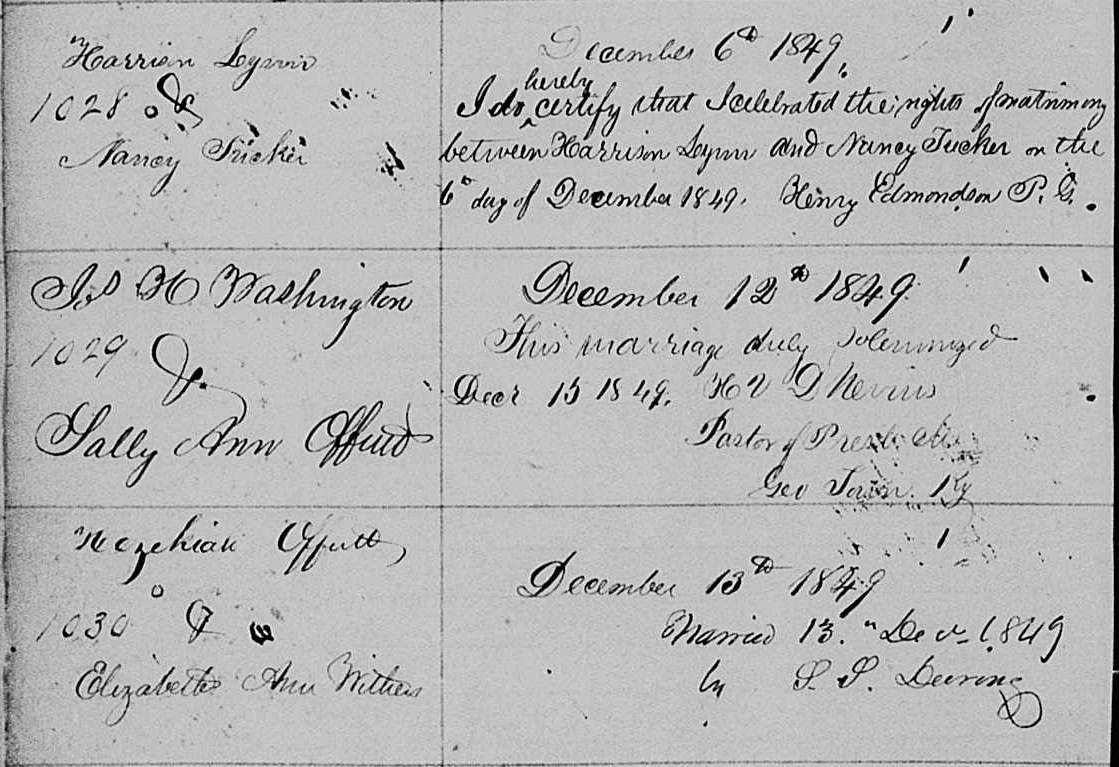 Harrison Lynn
1028 &
Nancy Tucker
December 6th 1849.
hereby
I do certify that I celebrated the rights of matrimony
between Harrison Lynn and Nancy Tucker on the
6th day of December 1849. Henry Edmondson P. G.
Jas H Washington
1029 &
Sally Ann Offutt
December 12th 1849
This marriage duly solemnized
Decr 13 1849. H V D Nevius
Pastor of Presb
Geo Town Ky
Hezekiah Offutt
1030 &
Elizabeth Ann Withers
December 13th 1849
Married 13" Decr 1849
by S. S. Deering